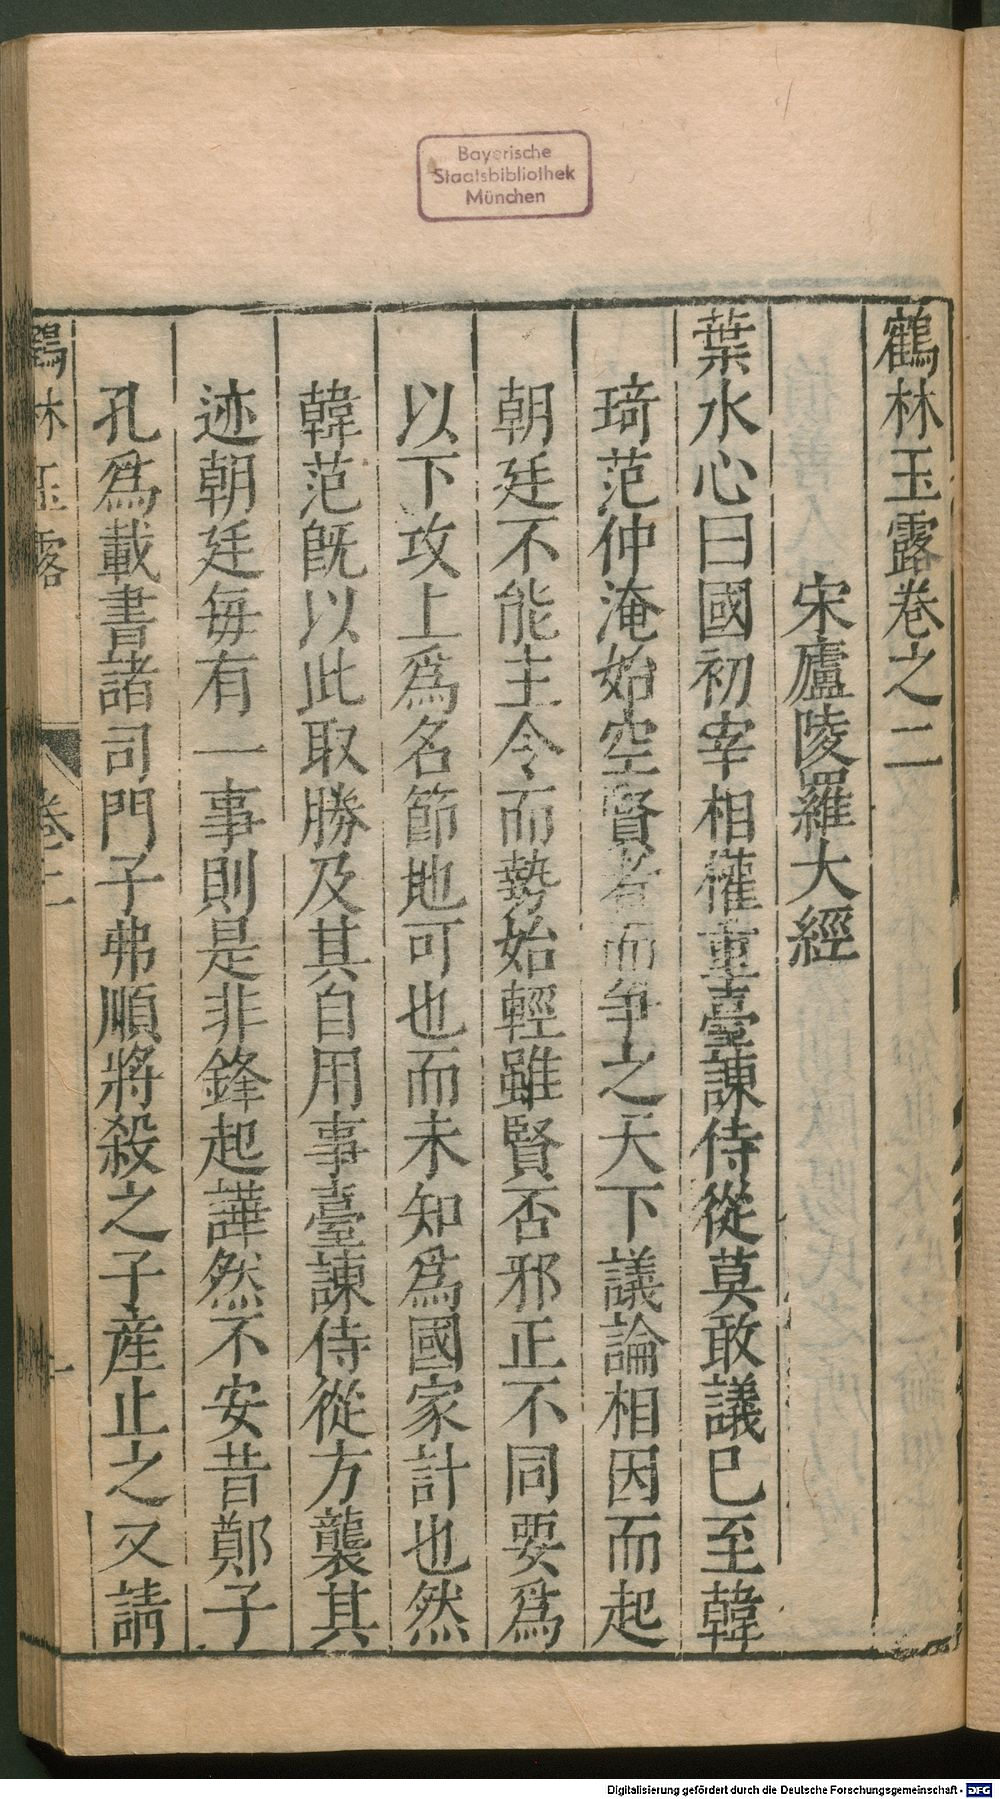 Bayerische
Staatsbibliothek
München
鶴林玉露卷之二
宋廬陵羅大經
葉水心曰國初宰相權重臺諫侍從莫敢議已至韓
琦范仲淹始空賢者而爭之天下議論相因而起
朝廷不能主令而勢始輕雖賢否邪正不同要爲
以下攻上爲名節地可也而未知爲國家計也然
韓范旣以此取勝及其自用事臺諫侍從方襲其
迹朝廷每有一事則是非鋒起譁然不安昔鄭子
孔爲載書諸司門子弗順將殺之子産止之又請
鶴林玉露 卷二 一
Digitalisierung gefördert durch die Deutsche Forschungsgemeinschaft - DFG